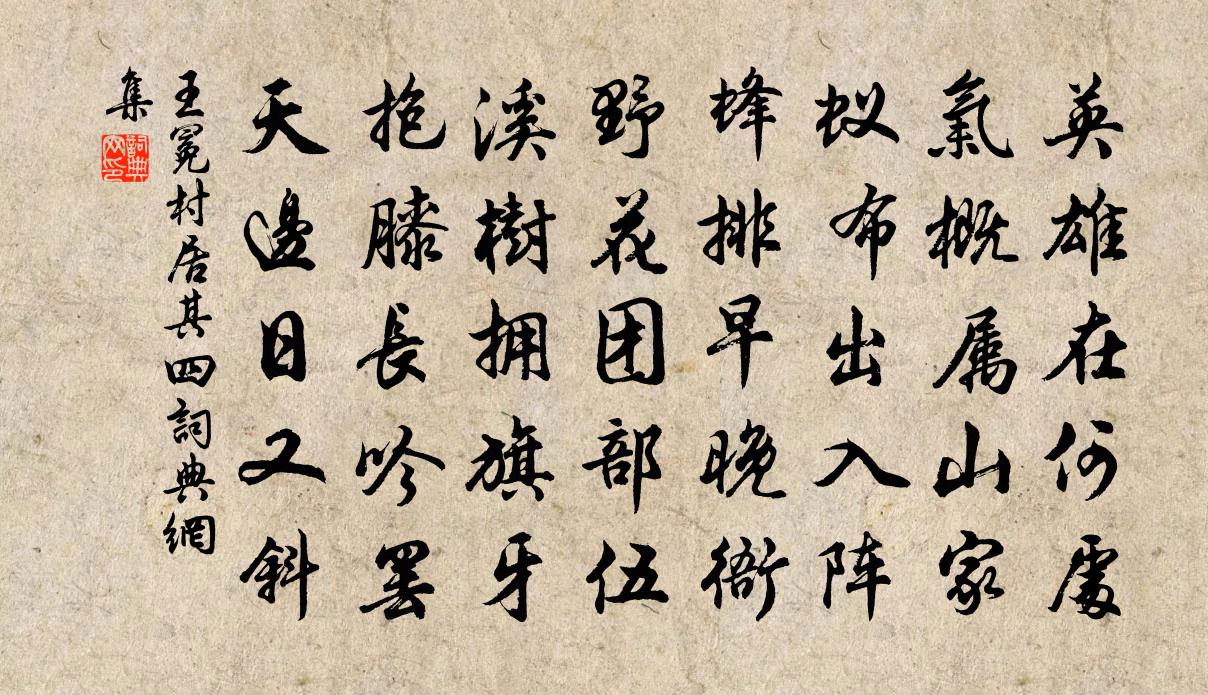 英雄在何處
氣概属山家
蚁布出入阵
蜂排早晚衙
野花团部伍
溪樹拥旗牙
抱膝長吟罢
天邊日又斜
王冕村居其四詞典網
集
詞典
网印